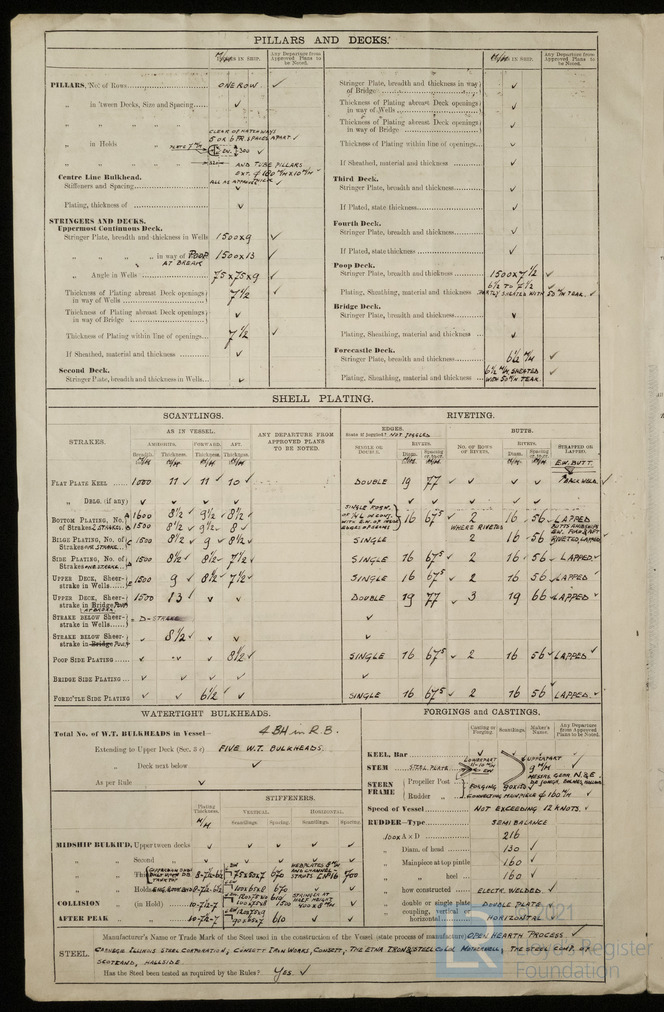 PILLARS AND DECKS.
M/M IN SHIP.
Any Departure from Approved Plans to be Noted.
PILLARS, No. of Rows ONE ROW ✓
„ in 'tween Decks, Size and Spacing ✓
CLEAR OF HATCHWAYS
5 OR 6 FR. SPACES APART ✓
„ in Holds
AND TUBE PILLARS
Centre Line Bulkhead.
Stiffeners and Spacing
Plating, thickness of ✓
STRINGERS AND DECKS.
Uppermost Continuous Deck.
Stringer Plate, breadth and thickness in Wells 1500x9 ✓
„ „ „ „ in way of POOP 1500x13 ✓
AT BREAK
„ Angle in Wells 75x75x9 ✓
Thickness of Plating abreast Deck openings in way of Wells 7½ ✓
Thickness of Plating abreast Deck openings in way of Bridge ✓
Thickness of Plating within line of openings 7½ ✓
If Sheathed, material and thickness ✓
Second Deck.
Stringer Plate, breadth and thickness in Wells ✓
M/M IN SHIP.
Any Departure from Approved Plans to be Noted.
Stringer Plate, breadth and thickness in way of Bridge ✓
Thickness of Plating abreast Deck openings in way of Wells ✓
Thickness of Plating abreast Deck openings in way of Bridge ✓
Thickness of Plating within line of openings ✓
If Sheathed, material and thickness ✓
Third Deck.
Stringer Plate, breadth and thickness ✓
If Plated, state thickness ✓
Fourth Deck.
Stringer Plate, breadth and thickness ✓
If Plated, state thickness ✓
Poop Deck.
Stringer Plate, breadth and thickness 1500x7½ ✓
Plating, Sheathing, material and thickness 6½ TO 7½ PARTLY SHEATED WITH 50 M/M TEAK. ✓
Bridge Deck.
Stringer Plate, breadth and thickness ✓
Plating, Sheathing, material and thickness ✓
Forecastle Deck.
Stringer Plate, breadth and thickness 6½ M/M ✓
Plating, Sheathing, material and thickness 6½ M/M SHEATED WITH 50 M/M TEAK. ✓
SHELL PLATING.
SCANTLINGS. RIVETING.
STRAKES. AS IN VESSEL. ANY DEPARTURE FROM APPROVED PLANS TO BE NOTED.
AMIDSHIPS. FORWARD. AFT.
Breadth. Thickness. Thickness. Thickness.
EDGES. BUTTS.
State if joggled? NOT JOGGLED
SINGLE OR DOUBLE. RIVETS. NO. OF ROWS OF RIVETS. RIVETS. STRAPPED OR LAPPED.
FLAT PLATE KEEL 1000 11 ✓ 11 ✓ 10 ✓ DOUBLE 19 77 ✓ E.W. BUTT. BACK WELD. ✓
„ DBLG. (if any) ✓ ✓ ✓ ✓
BOTTOM PLATING, No. of Strakes 2 STRAKES A 1600 8½ ✓ 9½ ✓ 8½ ✓ 16 67⁵ ✓ 2 16 56 ✓ LAPPED
B 1500 8½ ✓ 9½ ✓ 8 ✓ WHERE RIVETED
BILGE PLATING, No. of Strakes ONE STRAKE C 1500 8½ ✓ 9 ✓ 8½ ✓ SINGLE 2 16 56 ✓ RIVETED, LAPPED
SIDE PLATING, No. of Strakes ONE STRAKE D 1500 8½ ✓ 8½ ✓ 7½ ✓ SINGLE 16 67⁵ ✓ 2 16 56 ✓ LAPPED ✓
UPPER DECK, Sheerstrake in Wells E 1500 9 ✓ 8½ ✓ 7½ ✓ SINGLE 16 67⁵ ✓ 2 16 56 ✓ LAPPED ✓
UPPER DECK, Sheerstrake in Bridge POOP 1500 13 ✓ ✓ ✓ DOUBLE 19 77 ✓ 3 19 66 ✓ LAPPED ✓
STRAKE BELOW Sheerstrake in Wells = D-STRAKE ✓
STRAKE BELOW Sheerstrake in Bridge POOP ✓ 8½ ✓ ✓ ✓ ✓
POOP SIDE PLATING ✓ ✓ ✓ 8½ ✓ SINGLE 16 67⁵ ✓ 2 16 56 ✓ LAPPED ✓
BRIDGE SIDE PLATING ✓ ✓ ✓ ✓ ✓
FOREC'TLE SIDE PLATING ✓ ✓ 6½ ✓ ✓ SINGLE 16 67⁵ ✓ 2 16 56 LAPPED ✓
WATERTIGHT BULKHEADS.
Total No. of W.T. BULKHEADS in Vessel— 4 BH in R.B.
Extending to Upper Deck (Sec. 3 c) FIVE W.T. BULKHEADS.
„ Deck next below ✓
As per Rule ✓
Plating Thickness. STIFFENERS.
M/M VERTICAL. HORIZONTAL.
Scantlings. Spacing. Scantlings. Spacing.
MIDSHIP BULKH'D, Upper tween decks ✓ ✓ ✓ ✓ ✓
„ „ Second „ ✓ ✓ ✓ ✓ ✓
„ „ Third 8-7½-6½ 75x50x7 670 700
„ „ Holds 8-7½-6½ 100x65x8 670
COLLISION „ (in Hold) 10-7½-7 610
AFTER PEAK „ „ 10-7½-7 90x65x7 610 ✓ ✓
FORGINGS and CASTINGS.
Casting or Forging. Scantlings. Maker's Name. Any Departure from Approved Plans to be Noted.
KEEL, Bar ✓ ✓
STEM STEEL PLATE UPPERPART 9 M/M
STERN FRAME Propeller Post FORGING 90x150
Rudder „ CONNECTING MAINPIECE ⌀ 160 M/M ✓
Speed of Vessel NOT EXCEEDING 12 KNOTS. ✓
RUDDER—Type SEMI BALANCE
100x A × D 216
„ Diam. of head 130 ✓
„ Mainpiece at top pintle 160 ✓
„ „ heel 160 ✓
„ how constructed ELECTR. WELDED. ✓
„ double or single plate DOUBLE PLATE
„ coupling, vertical or horizontal HORIZONTAL
Manufacturer's Name or Trade Mark of the Steel used in the construction of the Vessel (state process of manufacture) OPEN HEARTH PROCESS. ✓
STEEL. CARNEGIE ILLINOIS STEEL CORPORATION, CONSETT IRON WORKS, CONSETT; THE ETNA IRON & STEEL Co Ld MOTHERWELL; THE STEEL COMP. OF
SCOTLAND, HALLSIDE.
Has the Steel been tested as required by the Rules? YES. ✓
2021
Lloyd's Register
Foundation